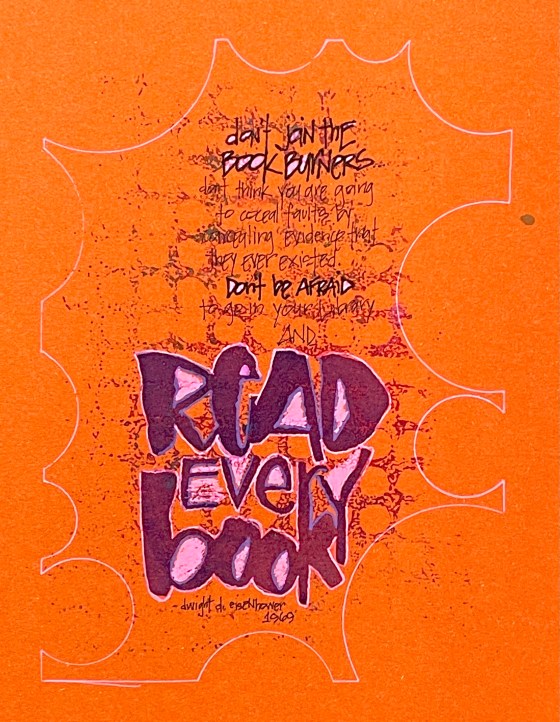 don't join the
BOOK BURNERS
don't think you are going
to coceal faults by
concealing evidence that
they ever existed
Don't be AFRAID
to go in your library
AND
READ
EVERY
book
dwight d. eisenhower
1969